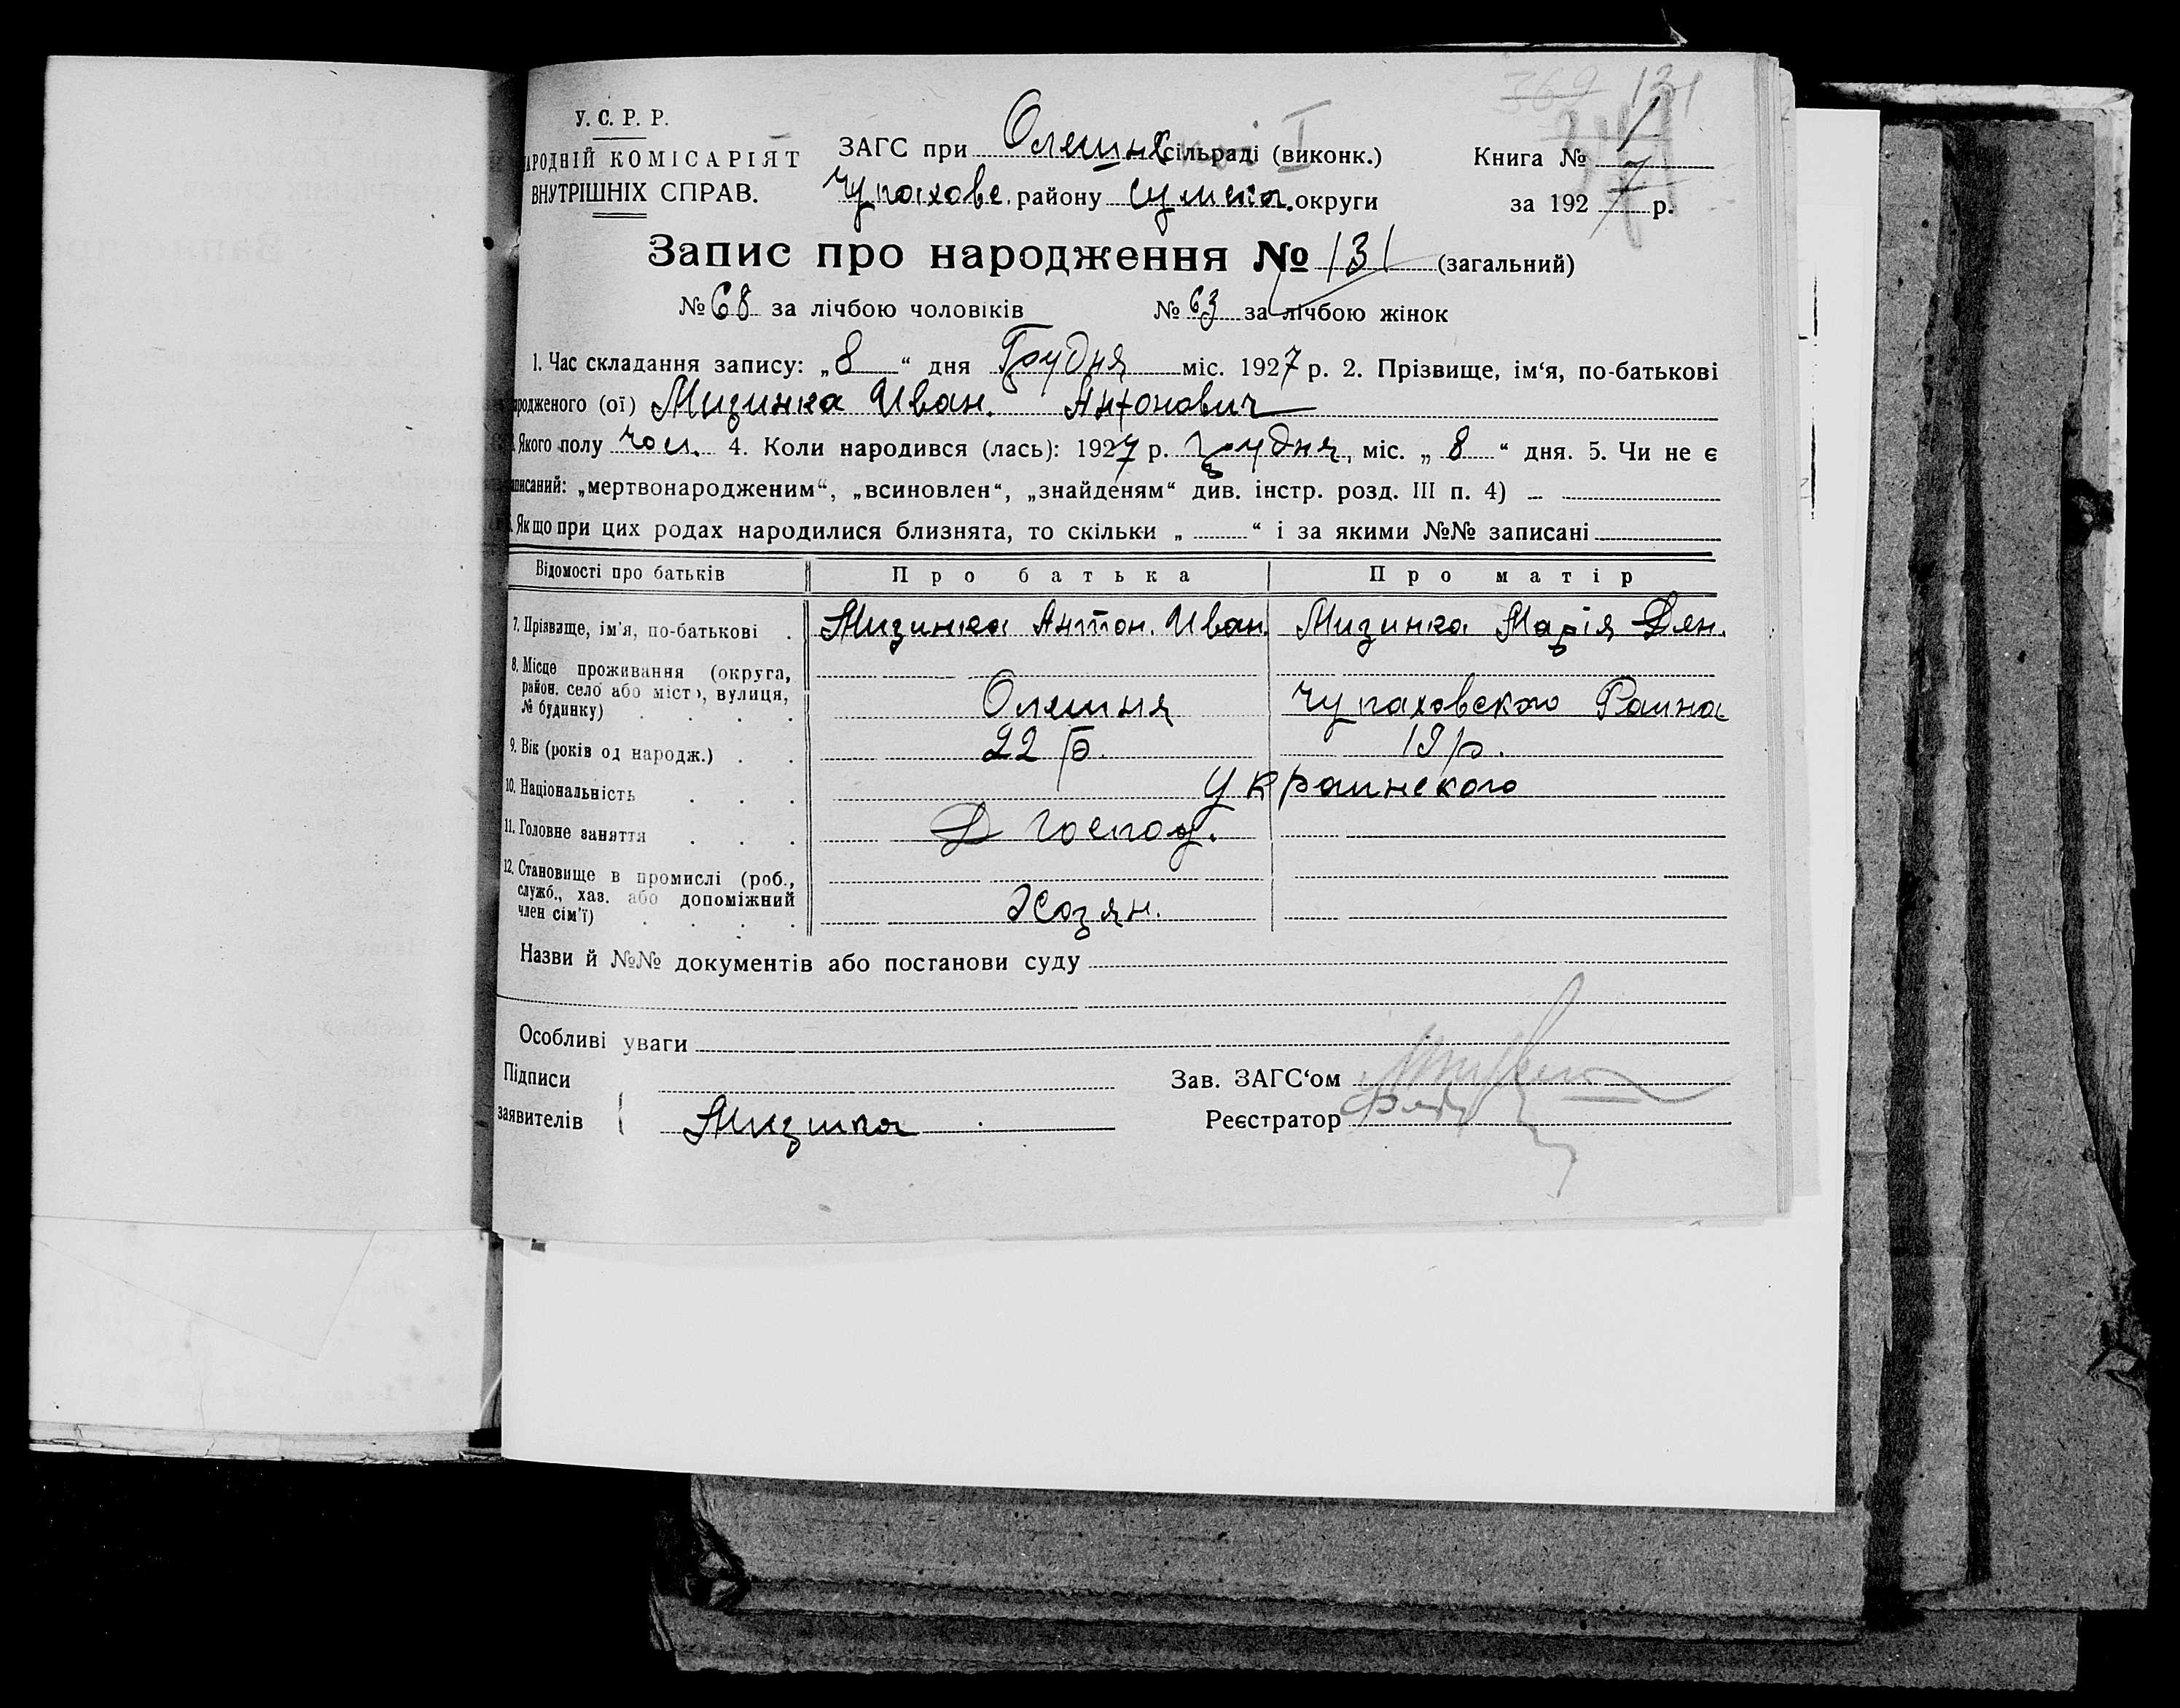 369 131
У. С. Р. Р.
НАРОДНІЙ КОМІСАРІЯТ
ВНУТРІШНІХ СПРАВ.
ЗАГС при Олешнх сільраді (виконк.) І
Чупахове. району Сумска. округи
Книга № 1
за 1927 р.
Запис про народження № 131 (загальний)
№ 68 за лічбою чоловіків № 63 за лічбою жінок
1. Час складання запису: „8“ дня Грудня міс. 1927 р. 2. Прізвище, ім‘я, по-батькові
народженого (ої) Мизинка Иван. Антонович
Якого полу чол. 4. Коли народився (лась): 1927 р. Грудня, міс. „8“ дня. 5. Чи не є
записаний: „мертвонародженим“, „всиновлен“, „знайденям“ див. інстр. розд. III п. 4) –
Якщо при цих родах народилися близнята, то скільки „ “ і за якими №№ записані
Відомості про батьків Про батька Про матір
7. Прізвище, ім'я, по-батькові . Мизинка Антон. Иван. Мизинка Марія Дян.
8. Місце проживання (округа,
район, село або місто), вулиця,
№ будинку) . . . . Олешня Чупаховского Раина
9. Вік (років од народж.) . . 22 р. 19 р.
10. Національність . . . Украинского
11. Головне заняття . . . Д Господ.
12. Становище в промислі (роб.,
служб., хаз. або допоміжний
член сім'ї) . . . . Хозян.
Назви й №№ документів або постанови суду
Особливі уваги
Підписи
заявителів Мизинка
Зав. ЗАГС‘ом
Реєстратор